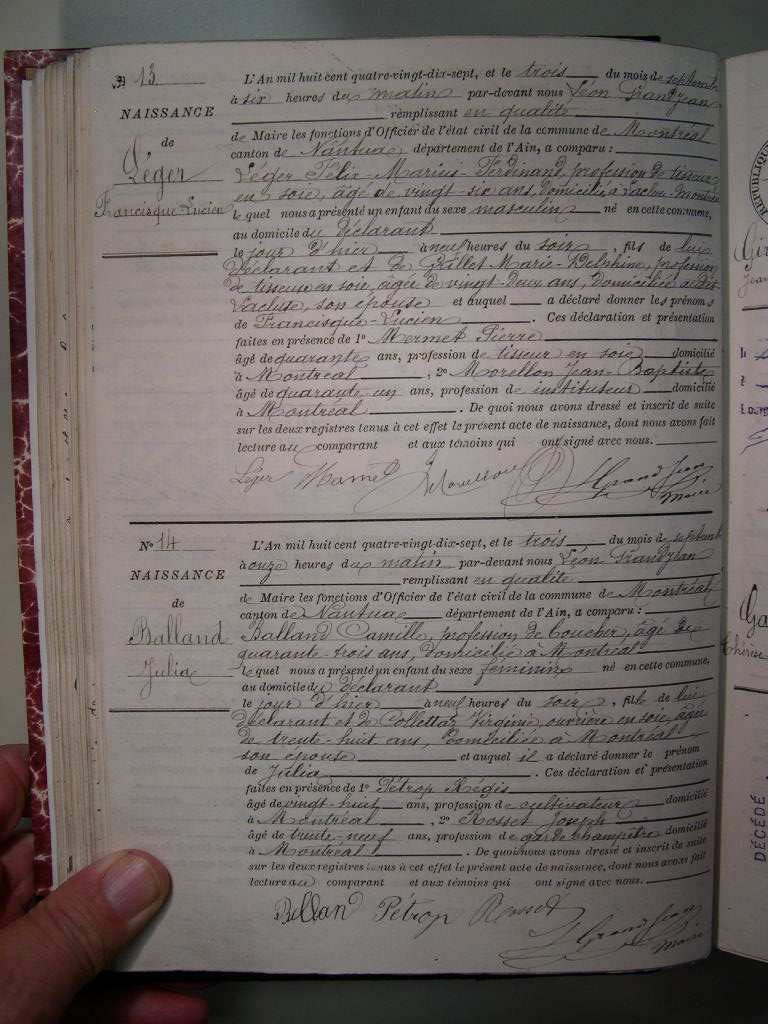 N° 13
NAISSANCE
de
Léger
Francisque Lucien
L'An mil huit cent quatre-vingt-dix-sept, et le trois du mois de septembre
à six heures du matin par-devant nous Léon Grandjean
remplissant en qualité
de Maire les fonctions d'Officier de l'état civil de la commune de Montréal
canton de Nantua, département de l'Ain, a comparu :
Léger Félix-Marius-Ferdinand, profession de tisseur
en soie, âgé de vingt six ans, domicilié à
le quel nous a présenté un enfant du sexe masculin né en cette commune,
au domicile du déclarant
le jour d'hier à neuf heures du soir, fils de lui
déclarant et de Billet Marie-Delphine, profession
de tisseur en soie, âgée de vingt-deux ans, domiciliée audit
Lacluse, son épouse et auquel a déclaré donner les prénoms
de Francisque-Lucien. Ces déclaration et présentation
faites en présence de 1° Mermet Pierre
âgé de quarante ans, profession de tisseur en soie domicilié
à Montréal, 2° Morellon Jean-Baptiste
âgé de quarante un ans, profession de instituteur domicilié
à Montréal. De quoi nous avons dressé et inscrit de suite
sur les deux registres tenus à cet effet le présent acte de naissance, dont nous avons fait
lecture au comparant et aux témoins qui ont signé avec nous.
Léger Grand Jean
maire
N° 14
NAISSANCE
de
Balland
Julia
L'An mil huit cent quatre-vingt-dix-sept, et le trois du mois de septembre
à onze heures du matin par-devant nous Léon Grandjean
remplissant en qualité
de Maire les fonctions d'Officier de l'état civil de la commune de Montréal
canton de Nantua département de l'Ain, a comparu :
Balland Camille, profession de boucher, âgé de
quarante-trois ans, domicilié à Montréal
le quel nous a présenté un enfant du sexe féminin né en cette commune,
au domicile du déclarant
le jour d'hier à neuf heures du soir, fille de lui
déclarant et de Collettaz Virginie, ouvrière en soie, âgée
de trente-huit ans, domiciliée à Montréal
son épouse et auquel il a déclaré donner le prénom
de Julia. Ces déclaration et présentation
faites en présence de 1° Pétrop Régis
âgé de vingt-huit ans, profession de cultivateur domicilié
à Montréal, 2° Rosset Joseph
âgé de trente-neuf ans, profession de garde champêtre domicilié
à Montréal. De quoi nous avons dressé et inscrit de suite
sur les deux registres tenus à cet effet le présent acte de naissance, dont nous avons fait
lecture au comparant et aux témoins qui ont signé avec nous.
Ballan Pétrop Rosset
Grand Jean
maire
DÉCÉDÉ